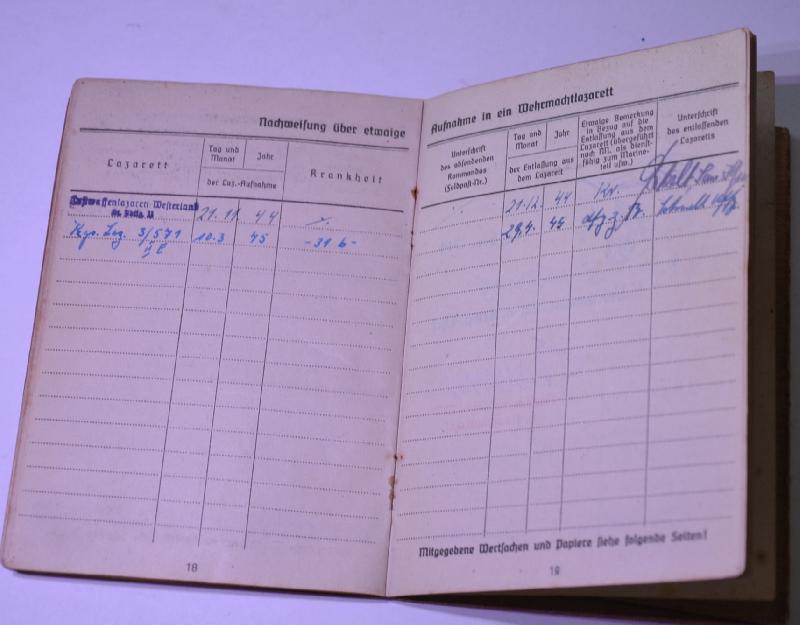 Nachweisung über etwaige
Lazarett
Tag und Monat
Jahr
der Laz.-Aufnahme
Krankheit
Luftwaffenlazarett Westerland
21. 11. 44
Kgs. Laz. 3/571 10.3 45 -31 b-
18
Aufnahme in ein Wehrmachtlazarett
Unterschrift
des absendenden
Kommandos
(Feldpost-Nr.)
Tag und Monat
Jahr
der Entlassung aus
dem Lazarett
Etwaige Bemerkung
in Bezug auf die
Entlassung aus dem
Lazarett (übergeführt
nach NN. als dienst-
fähig zum Marine-
teil usw.)
Unterschrift
des entlassenden
Lazaretts
21. 12. 44 Kv.
29.4. 45
Mitgegebene Wertsachen und Papiere siehe folgende Seiten!
19